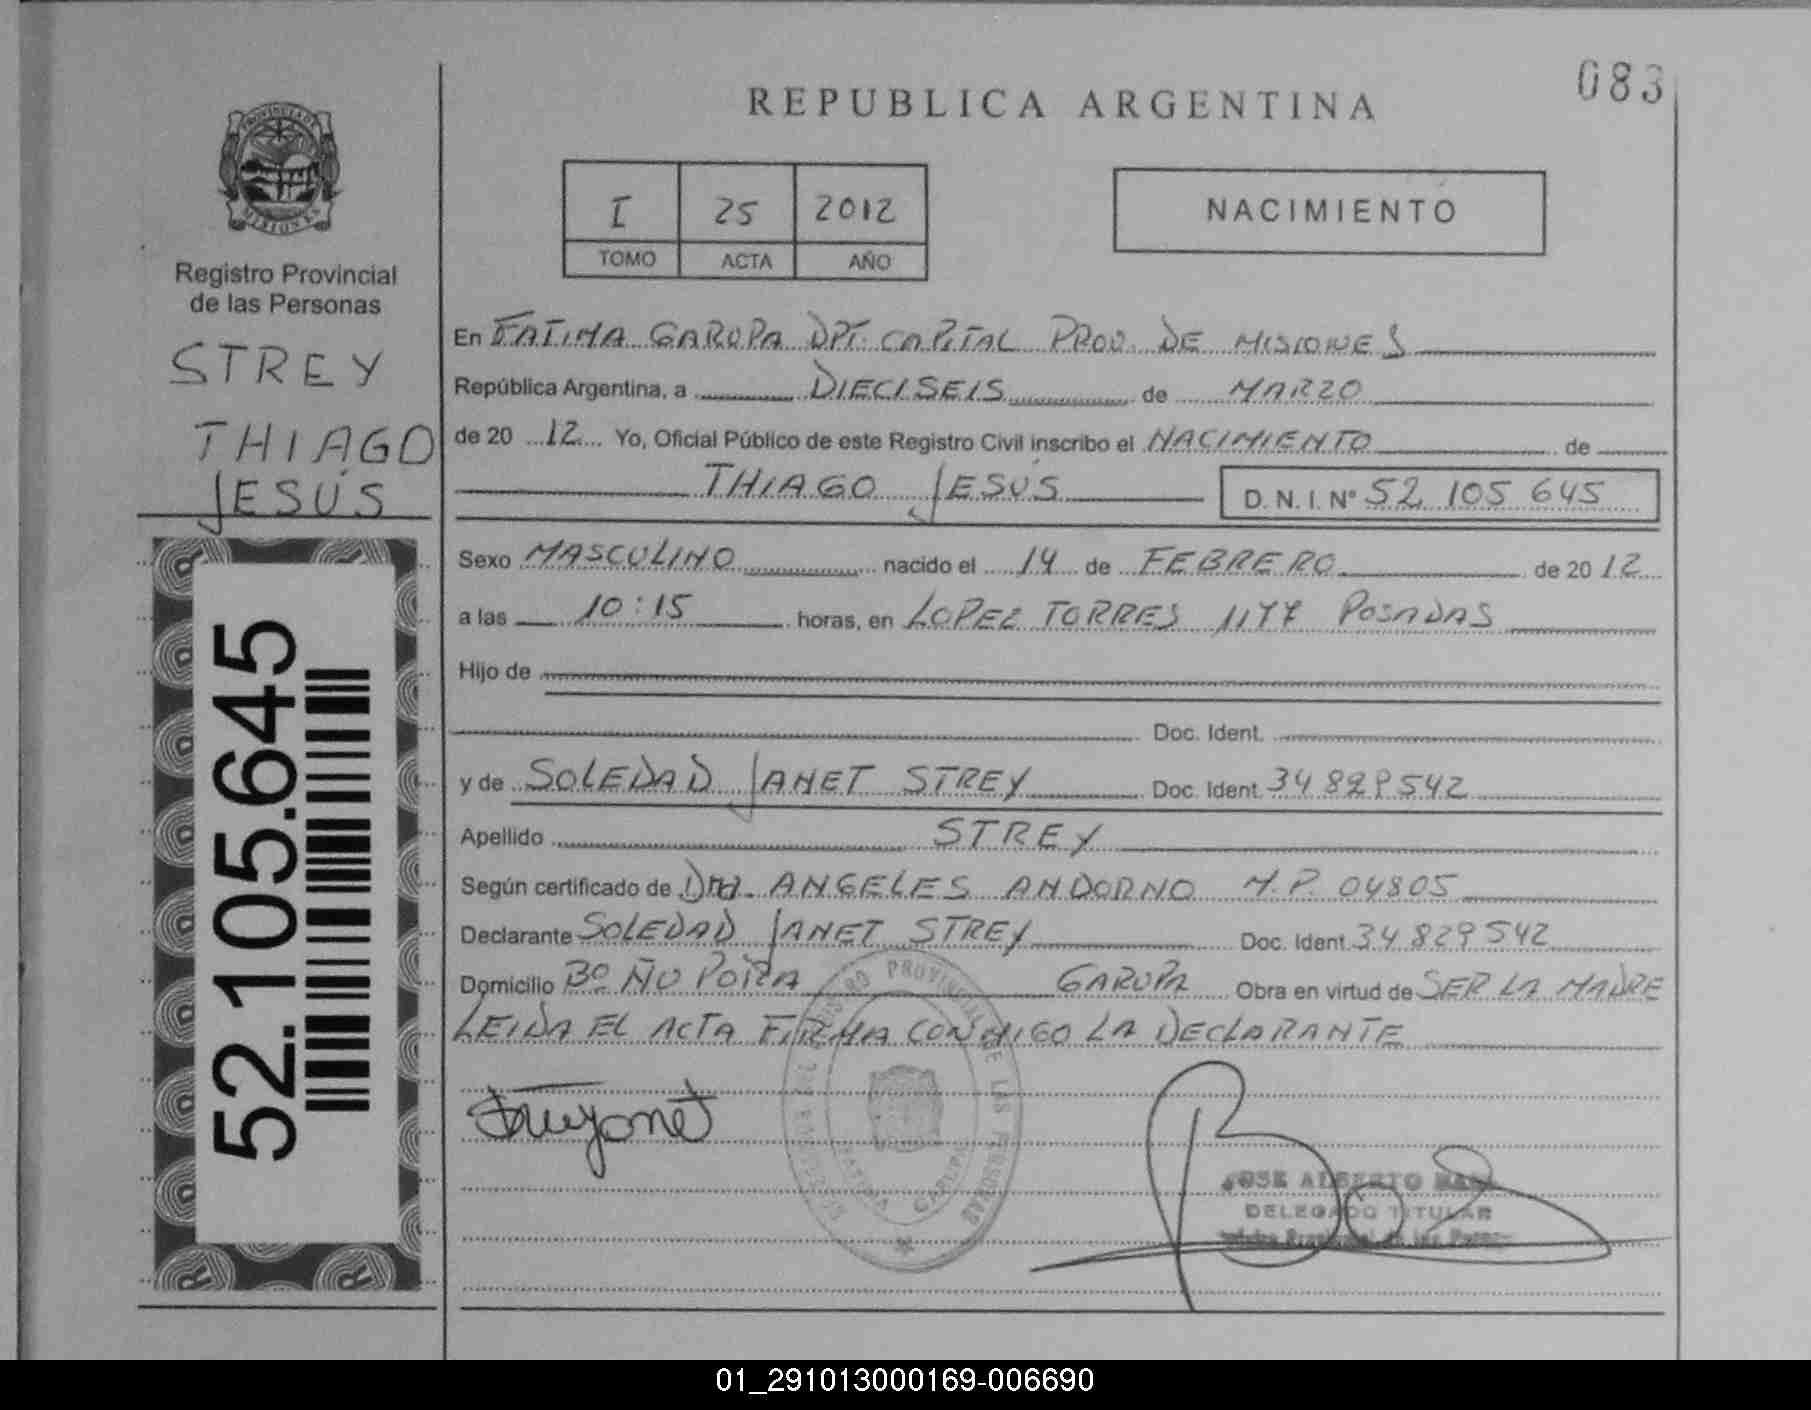 083
REPUBLICA ARGENTINA
PROVINCIA DE
MISIONES
Registro Provincial
de las Personas
STREY
THIAGO
JESÚS
52.105.645
I 25 2012
TOMO ACTA AÑO
NACIMIENTO
En FATIMA GARUPA DPT. CAPITAL PROV. DE MISIONES
República Argentina, a DIECISEIS de MARZO
de 20 12 Yo, Oficial Público de este Registro Civil inscribo el NACIMIENTO de
THIAGO JESÚS D. N. I. N° 52 105 645
Sexo MASCULINO nacido el 14 de FEBRERO de 20 12
a las 10:15 horas, en LOPEZ TORRES 1177 POSADAS
Hijo de
Doc. Ident.
y de SOLEDAD JANET STREY Doc. Ident. 34 829 542
Apellido STREY
Según certificado de Dra. ANGELES ANDORNO M.P. 04805
Declarante SOLEDAD JANET STREY Doc. Ident. 34 829 542
Domicilio Bº ÑU PORA GARUPA Obra en virtud de SER LA MADRE
LEIDA EL ACTA FIRMA CONMIGO LA DECLARANTE
REGISTRO PROVINCIAL DE LAS PERSONAS
FATIMA GARUPA
JOSE ALBERTO
DELEGADO TITULAR
Provincial de las
01_291013000169-006690